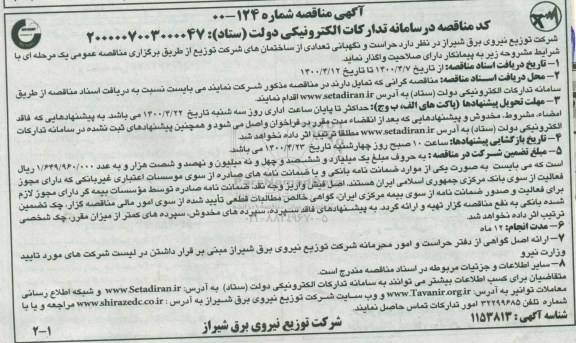 آگهی مناقصه شماره ۱۲۴-۰۰
کد مناقصه در سامانه تدارکات الکترونیکی دولت (ستاد): ۲۰۰۰۰۰۷۰۰۳۰۰۰۰۴۷
شرکت توزیع نیروی برق شیراز در نظر دارد حراست و نگهبانی تعدادی از ساختمان های شرکت توزیع از طریق برگزاری مناقصه عمومی یک مرحله ای با
شرایط مشروحه زیر به پیمانکاران دارای صلاحیت واگذار نماید.
۱- تاریخ دریافت اسناد مناقصه: از تاریخ ۱۳۰۰/۳/۷ تا تاریخ ۱۳۰۰/۳/۱۲
۲- محل دریافت اسناد مناقصه: مناقصه گرانی که تمایل دارند در مناقصه مذکور شرکت نمایند می بایست نسبت به دریافت اسناد مناقصه از طریق
سامانه تدارکات الکترونیکی دولت (ستاد) به آدرس www.setadiran.ir اقدام نمایند.
۳- مهلت تحویل پیشنهادها (پاکت های الف، ب و ج): حداکثر تا پایان ساعت اداری روز سه شنبه تاریخ ۱۳۰۰/۳/۲۲ می باشد. به پیشنهادهایی که فاقد
امضاء، مشروط، مخدوش و پیشنهادهایی که بعد از انقضاء مدت مقرر در فراخوان واصل می شود و همچنین پیشنهادهای ثبت نشده در سامانه تدارکات
الکترونیکی دولت (ستاد) به آدرس www.setadiran.ir مطلقا ترتیب اثر داده نخواهد شد.
۴- تاریخ بازگشایی پیشنهادها: ساعت ۱۰ صبح روز چهارشنبه تاریخ ۱۳۰۰/۳/۲۳ می باشد.
۵- مبلغ تضمین شرکت در مناقصه: به حروف مبلغ یک میلیارد و ششصد و چهل و نه میلیون و نهصد و شصت هزار و به عدد ۱/۶۴۹/۹۶۰/۰۰۰ ریال
است که می بایست به صورت یکی از موارد ضمانت نامه بانکی و یا ضمانت نامه های صادره از سوی موسسات اعتباری غیربانکی که دارای مجوز
فعالیت از سوی بانک مرکزی جمهوری اسلامی ایران هستند، اصل فیش واریز وجه نقد، ضمانت نامه صادره توسط مؤسسات بیمه گر دارای مجوز لازم
برای فعالیت و صدور ضمانت نامه از سوی بیمه مرکزی ایران، گواهی خالص مطالبات قطعی تأیید شده از سوی امور مالی مناقصه گزار، چک تضمین
شده بانکی به نفع مناقصه گزار تهیه و ارائه گردد. به پیشنهادهای فاقد سپرده، سپرده های مخدوش، سپرده های کمتر از میزان مقرر، چک شخصی
ترتیب اثر داده نخواهد شد.
۶- مدت انجام: ۱۲ ماه
۷- ارائه اصل گواهی از دفتر حراست و امور محرمانه شرکت توزیع نیروی برق شیراز مبنی بر قرار داشتن در لیست شرکت های مورد تایید
وزارت نیرو
۸- سایر اطلاعات و جزئیات مربوطه در اسناد مناقصه مندرج است.
متقاضیان برای کسب اطلاعات بیشتر می توانند به سامانه تدارکات الکترونیکی دولت (ستاد) به آدرس: www.Setadiran.ir و شبکه اطلاع رسانی
معاملات توانیر به آدرس: www.Tavanir.org.ir و وب سایت شرکت توزیع نیروی برق شیراز به آدرس: www.shirazedc.co.ir مراجعه و یا با
شماره تلفن ۳۲۲۹۹۶۸۵ امور تدارکات تماس حاصل نمایند.
شناسه آگهی: ۱۱۵۳۸۱۳
شرکت توزیع نیروی برق شیراز
۲-۱